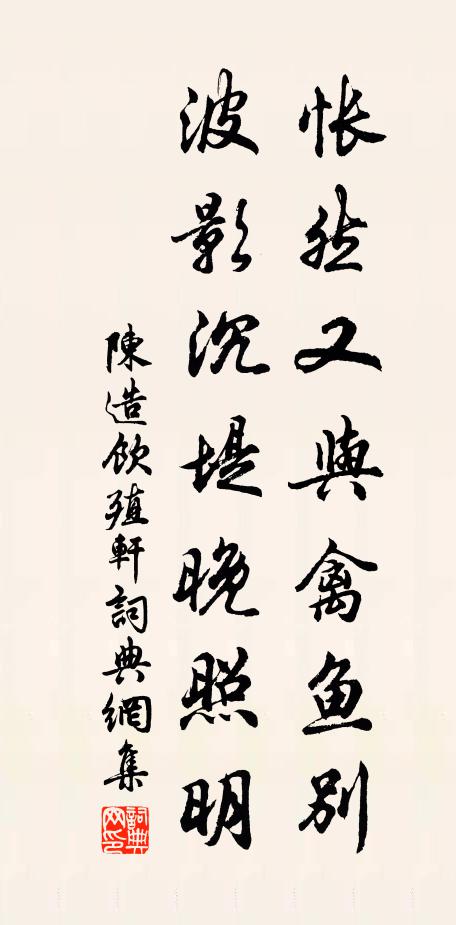 怅然又與禽鱼别
波影沉堤晚照明
陳造飲殖軒詞典網集
詞典網印